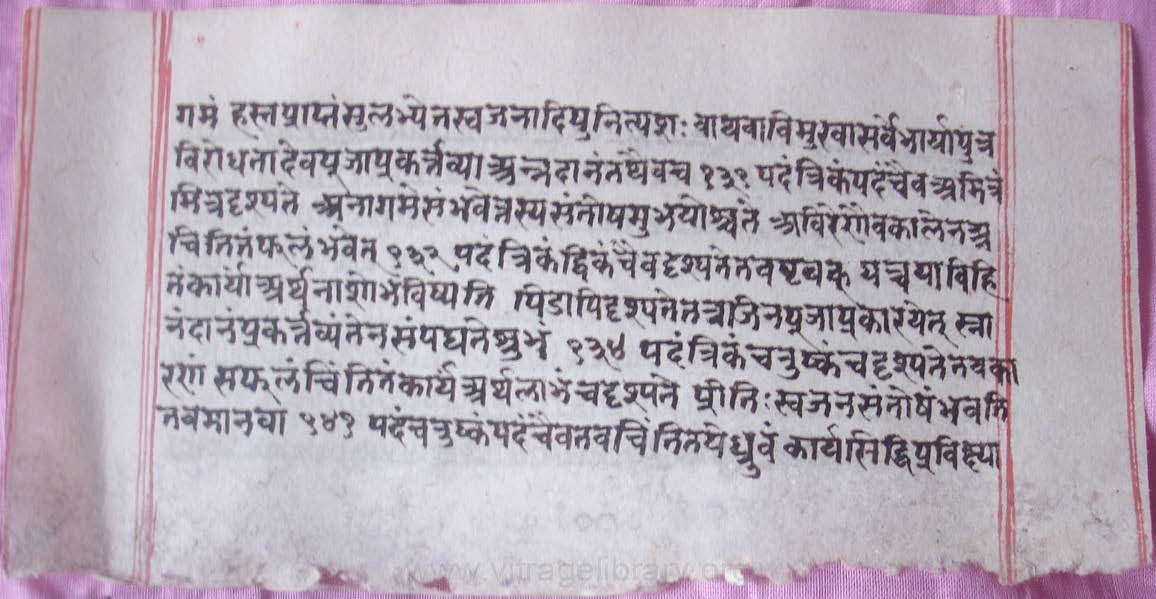 गमं हस्तप्राप्तंसुलभ्येनस्वजनादियुनित्यशः वाथवाविमुखासर्वेभार्यापुत्र
विरोधताेदेवपूजाप्रकर्त्तव्याअन्नदानंतथैवच १३१ पदंत्रिकंपदंचैवअमित्रं
मित्रदृश्यते अनागमेसंभवेत्तस्यसंतोषमुभयोश्चते अविरेणैवकालेनअ
चिंतितंफलंभवेत् १३२ पदंत्रिकंद्विकंचैवदृश्यतेतवपृच्छक यच्चयाविहि
तंकार्याअर्थनाशोभविष्यति पिडापिदृश्यतेतत्राजिनपूजाप्रकारयेत् स्ना
नंदानंप्रकर्त्तव्यंतेनसंपद्यतेशुभं १३४ पदंत्रिकंचतुष्कंचदृश्यतेतवका
रणं सफलंचिंतितंकार्यअर्थलाभंचदृश्यते प्रीतिःस्वजनसंतोषंभवति
तवमानवा १४१ पदंचतुष्कंपदंचैवतवचिंतितयेध्रुवं कार्यसिद्धिप्रविक्ष्या
www.vitragelibrary.org